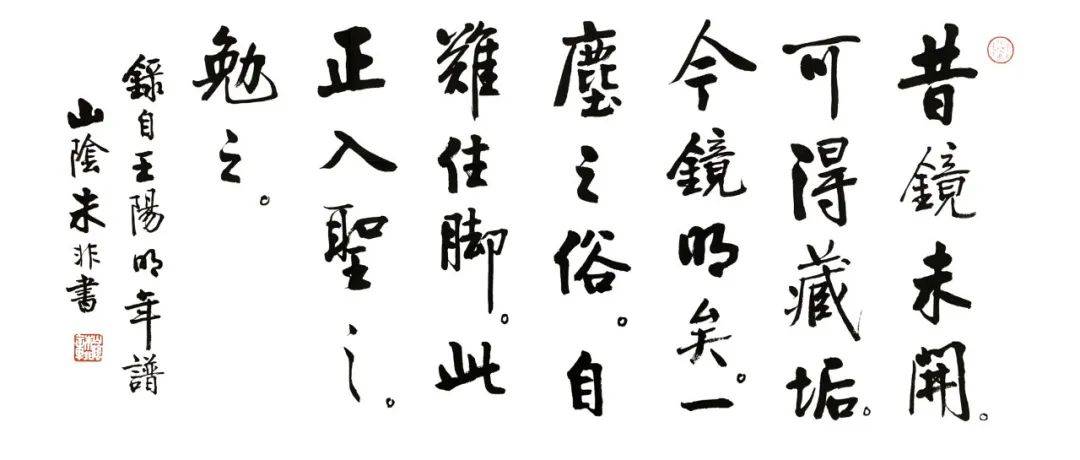 昔鏡未開。
可得藏垢。
今鏡明矣。一
塵之俗。自
難住脚。此
正入聖之。
勉之。
錄自王陽明年譜
山陰朱非書